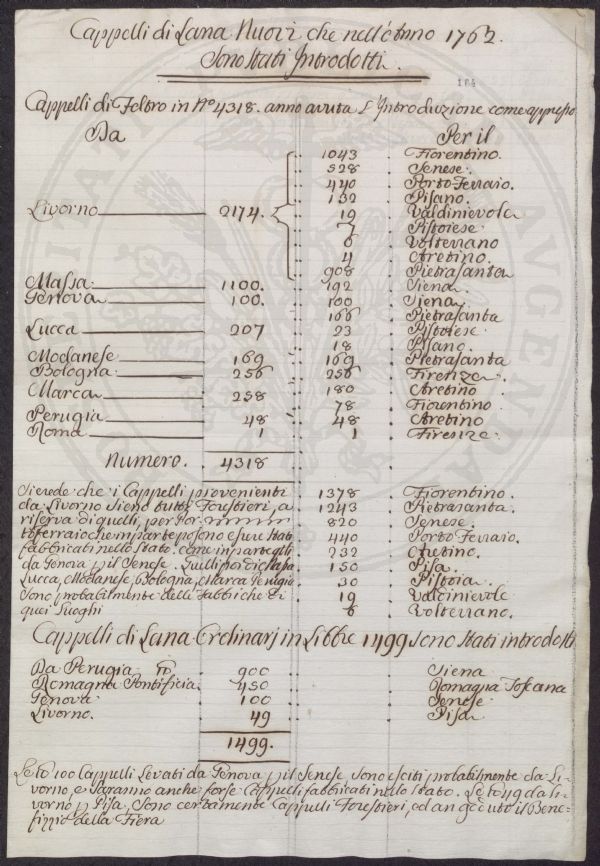 Cappelli di Lana Nuovi che nell'anno 1762.
Sono Stati Introdotti.
Cappelli di Feltro in N.o 4318. anno avuta l'Introduzione come appresso
Da Per il
1043 Fiorentino.
528 Senese.
440 Porto Ferraio.
132 Pisano.
Livorno 2174. 19 Valdinievola
7 Pistoiese
6 Volterrano
4 Aretino.
908 Pietrasanta
Massa 1100. 192 Siena
Genova 100. 100 Siena
166 Pietrasanta
Lucca 207 23 Pistoiese
18 Pisano.
Modanese 169 169 Pietrasanta
Bologna 256 256 Firenze
Marca 258 180 Aretino
78 Fiorentino
Perugia 48 48 Aretino
Roma 1 1 Firenze
Numero. 4318
Si crede che i Cappelli provenienti 1378 Fiorentino.
da Livorno sieno tutti Forestieri, a 1243 Pietrasanta.
riserva di quelli, per Por 820 Senese.
toferraio che in parte posono esere stati 440 Porto Ferraio.
fabbricati nello Stato, come in parte gli 232 Aretino.
da Genova p il Senese. Quelli poi di Massa 150 Pisa.
Lucca, Modanese, Bologna, Marca Perugia 30 Pistoia
sono probabilmente delle fabbriche di 19 Valdinievole
quei Luoghi 6 Volterrano.
Cappelli di Lana Ordinarj in Libbre 1499 sono stati introdotti
Da Perugia 900 Siena
Romagna Pontificia 450 Romagna Toscana
Genova 100 Senese
Livorno. 49 Pisa
1499.
Le 100 Cappelli Levati da Genova p il Senese, sono esciti probabilmente da Li-
vorno e saranno anche forse Cappelli fabbricati nello Stato. Le 49 da Li-
vorno p Pisa, sono certamente Cappelli Forestieri, ed an goduto il Bene-
fizio della Fiera